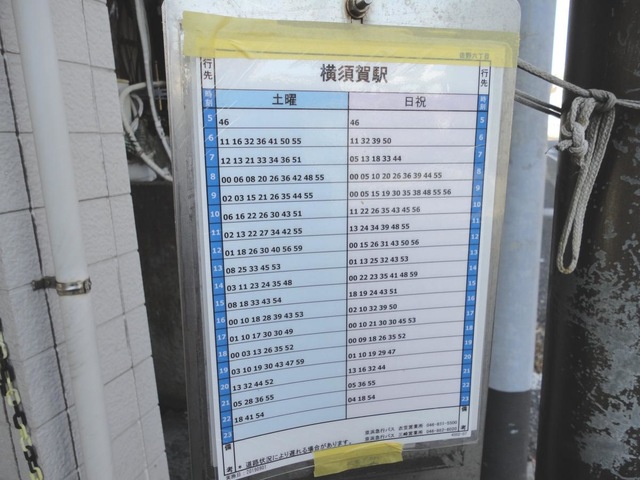 佐野六丁目
行先 横須賀駅 行先
時刻 土曜 日祝 時刻
5 46 46 5
6 11 16 32 36 41 50 55 11 32 39 50 6
7 12 13 21 33 34 36 51 05 13 18 33 44 7
8 00 06 08 20 26 36 42 48 55 00 05 10 20 20 26 36 39 44 55 8
9 02 03 15 21 26 35 44 55 00 05 15 19 30 35 38 48 55 56 9
10 06 16 22 26 30 43 51 11 22 26 35 43 45 56 10
11 02 13 22 27 34 42 55 13 24 34 39 48 55 11
12 01 18 26 30 40 56 59 00 15 26 31 43 50 56 12
13 08 25 33 45 53 01 13 25 32 43 53 13
14 03 11 23 24 35 48 00 22 23 35 41 48 59 14
15 08 18 33 43 54 18 19 24 43 51 15
16 00 10 18 28 39 43 53 02 10 32 39 50 16
17 01 10 17 30 30 49 00 10 21 30 30 45 53 17
18 00 03 13 26 35 52 00 09 18 26 35 52 18
19 03 10 19 30 43 47 59 01 10 19 29 47 19
20 13 32 44 52 13 16 32 44 20
21 05 28 36 55 05 36 55 21
22 18 41 54 04 18 54 22
23 23
備考 * 道路状況により遅れる場合があります。 備考
京浜急行バス 衣笠営業所
京浜急行バス 三崎営業所